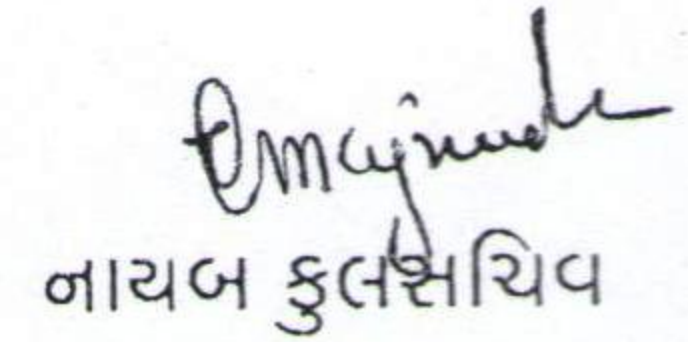 નાયબ કુલસચિવ